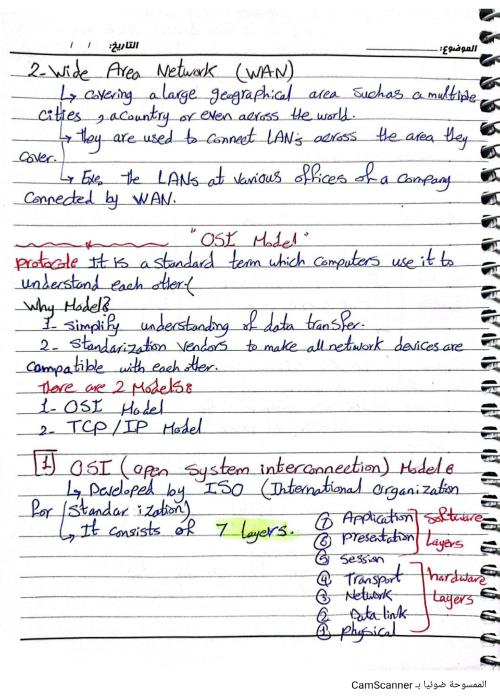 الموضوع: التاريخ: / /
2-Wide Area Network (WAN)
↳ covering a large geographical area suchas a multiple
cities, a country or even across the world.
→ they are used to connect LANs across the area they
cover.
↳ Exe. the LANs at various offices of a company
Connected by WAN.
"OSI Model"
Protocole It is a standard term which computers use it to
understand each other.
Why Model?
1- Simplify understanding of data transfer.
2- Standarization vendors to make all network devices are
Compatible with each other.
There are 2 Models:
1- OSI Model
2- TCP/IP Model
1 OSI (open System interconnection) Model:
↳ Developed by ISO (International organization
For Standar ization)
↳ It consists of 7 layers.
⑦ Application Software
⑥ Presentation Layers
⑤ Session
④ Transport hardware
③ Network Layers
② Data link
① Physical
الممسوحة ضوئيا بـ CamScanner